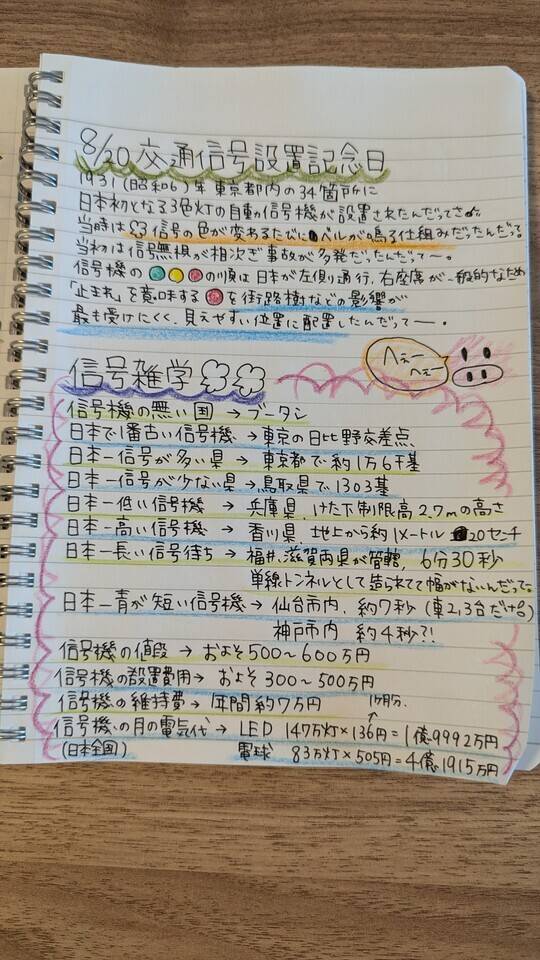 8/20 交通信号設置記念日
1931(昭和6)年 東京都内の34箇所に
日本初となる3色灯の自動信号機が設置されたんだってさ
当時は信号の色が変あるたびにベルが鳴る仕組みだったんだって。
当初は信号無視が相次ぎ事故が多発だったんだってー。
信号機の の順は日本が左側通行、右座席が一般的なため
「止まれ」を意味する を街路樹などの影響が
最も受けにくく、見えやすい位置に配置したんだってー。
へぇー
へぇー
信号雑学
信号機の無い国 → ブータン
日本で1番古い信号機 → 東京の日比野交差点、
日本一信号が多い県 → 東京都で約1万6千基
日本一信号が少ない県 → 鳥取県で1303基
日本一低い信号機 → 兵庫県、けた下制限高2.7mの高さ
日本一高い信号機 → 香川県、地上から約1メートル 20センチ
日本一長い信号待ち → 福井、滋賀両県が管轄、6分30秒
単線トンネルとして造られてて幅がないんだって。
日本一青が短い信号機 → 仙台市内、約7秒(車2,3台だけ)
神戸市内 約4秒?!
信号機の値段 → およそ500〜600万円
信号機の設置費用 → およそ300〜500万円
信号機の維持費 → 1年間約7万円
1ヶ月分、
信号機の月の電気代 → LED 147万灯×136円=1億9992万円
(日本全国) 電球 83万灯×505円=4億1915万円